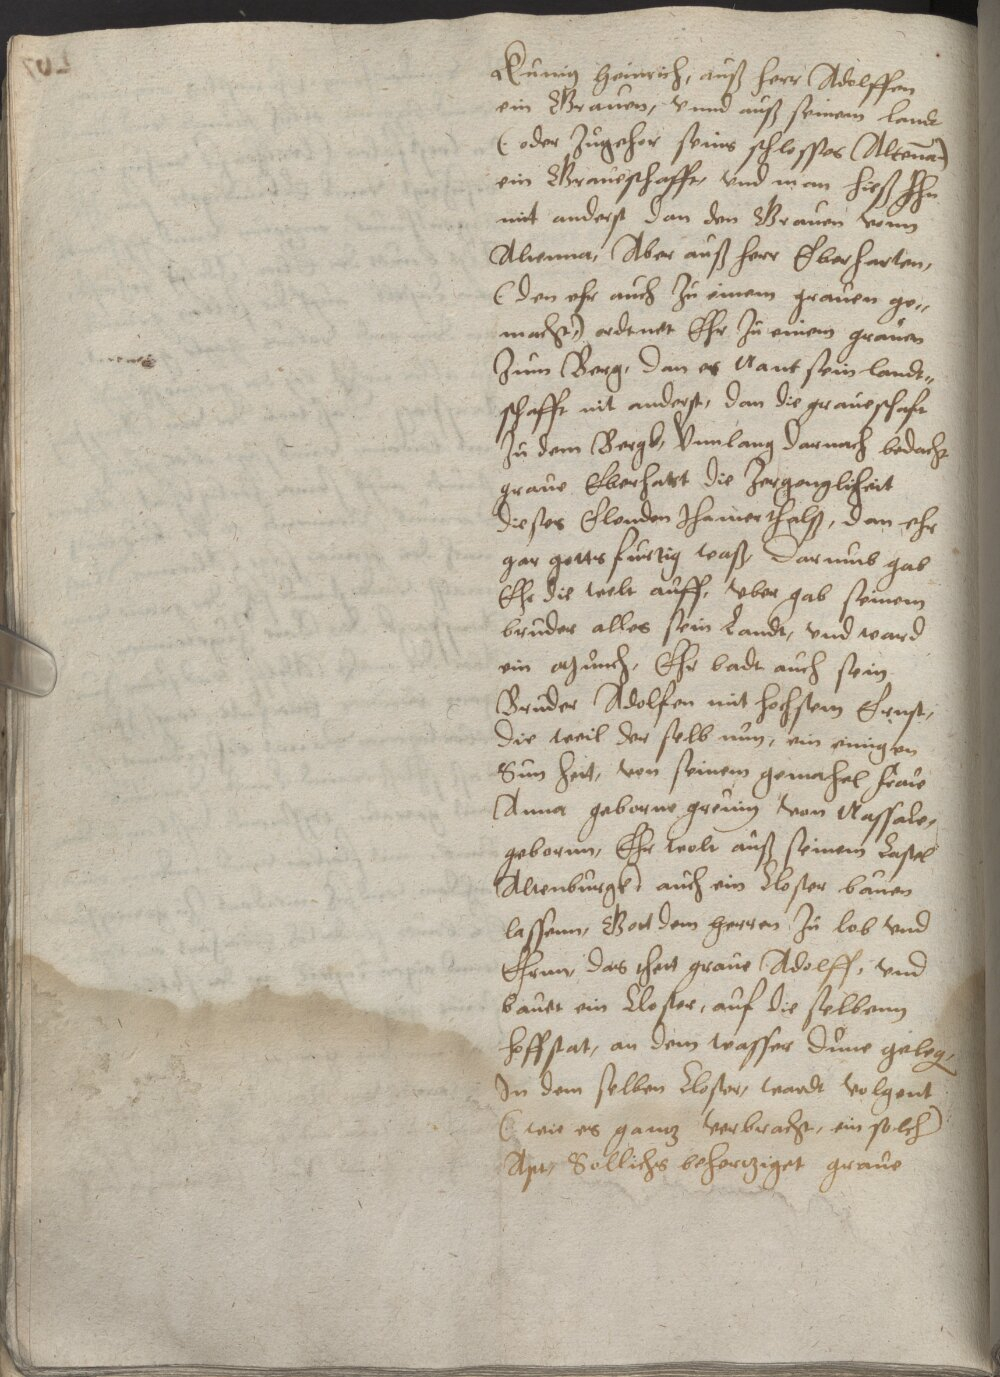 Kunig Heinrich, auß herr Adolffen
ein Graven, Unnd auß seinem landt
(oder Zugehor seins schlosses Altena)
ein Graveschafft, und man hieß Ihn
nit anderst dan den Graven vonn
Altenna, Aber auß herr Eberharten,
(den ehr auch Zu einem graven ge„
macht) ordtnet Ehr Zu einem graven
Zum Berg, dan es Nant sein landt„
schafft nit anderst, dan die graveschaft
Zu dem Bergk, Unnlang darnach bedacht
grave Eberhatt die Zergenglikeit
dieses Elenden Jhamerthalß, dan ehr
gar gottsfurtig waß, Darumb gab
Ehr die welt auff, uber gab seinem
bruder alles sein Landt, und ward
ein Munch, Ehr badt auch sein
Bruder Adolfen mit hochstem Ernst,
die weil der selb nun, ein einigen
Sun hett, von seinem gemahel frave
Anna geborne grevin von Nassave,
gebornn, Ehr wolt auß seinem Castel
Altenburgk auch ein Closter bauen
lassenn, Gott dem Herren Zu lob und
Ehrnn, das thett grave Adolff, und
bauet ein Closter, auf die selbenn
hoffstat, an dem wasser Dune geleg,
In dem selben Closter, wardt volgent
(wie es gantz verbracht, ein solch)
Apt, Sollichs behertziget grave